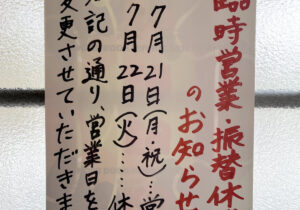 臨時営業・振替休
のお知らせ
7月21日(月・祝)…営
7月22日(火)……休
記の通り、営業日を
変更させていただきま